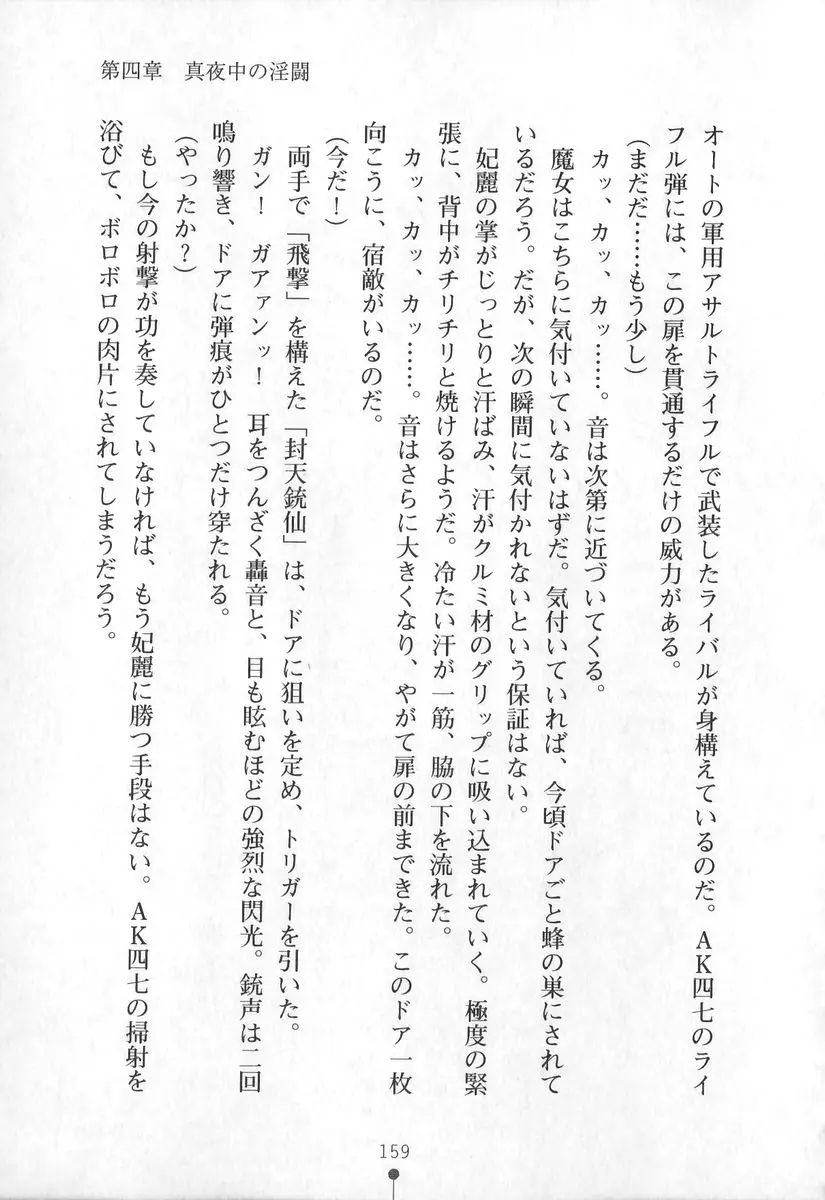 第四章　真夜中の淫闘
オートの軍用アサルトライフルで武装したライバルが身構えているのだ。ＡＫ四七のライ
フル弾には、この扉を貫通するだけの威力がある。
（まだだ……もう少し）
　カッ、カッ、カッ……。音は次第に近づいてくる。
　魔女はこちらに気付いていないはずだ。気付いていれば、今頃ドアごと蜂の巣にされて
いるだろう。だが、次の瞬間に気付かれないという保証はない。
　妃麗の掌がじっとりと汗ばみ、汗がクルミ材のグリップに吸い込まれていく。極度の緊
張に、背中がチリチリと焼けるようだ。冷たい汗が一筋、脇の下を流れた。
　カッ、カッ、カッ……。音はさらに大きくなり、やがて扉の前まできた。このドア一枚
向こうに、宿敵がいるのだ。
（今だ！）
　両手で「飛撃」を構えた「封天銃仙」は、ドアに狙いを定め、トリガーを引いた。
　ガン！　ガアァンッ！　耳をつんざく轟音と、目も眩むほどの強烈な閃光。銃声は二回
鳴り響き、ドアに弾痕がひとつだけ穿たれる。
（やったか？）
　もし今の射撃が功を奏していなければ、もう妃麗に勝つ手段はない。ＡＫ四七の掃射を
浴びて、ボロボロの肉片にされてしまうだろう。
159